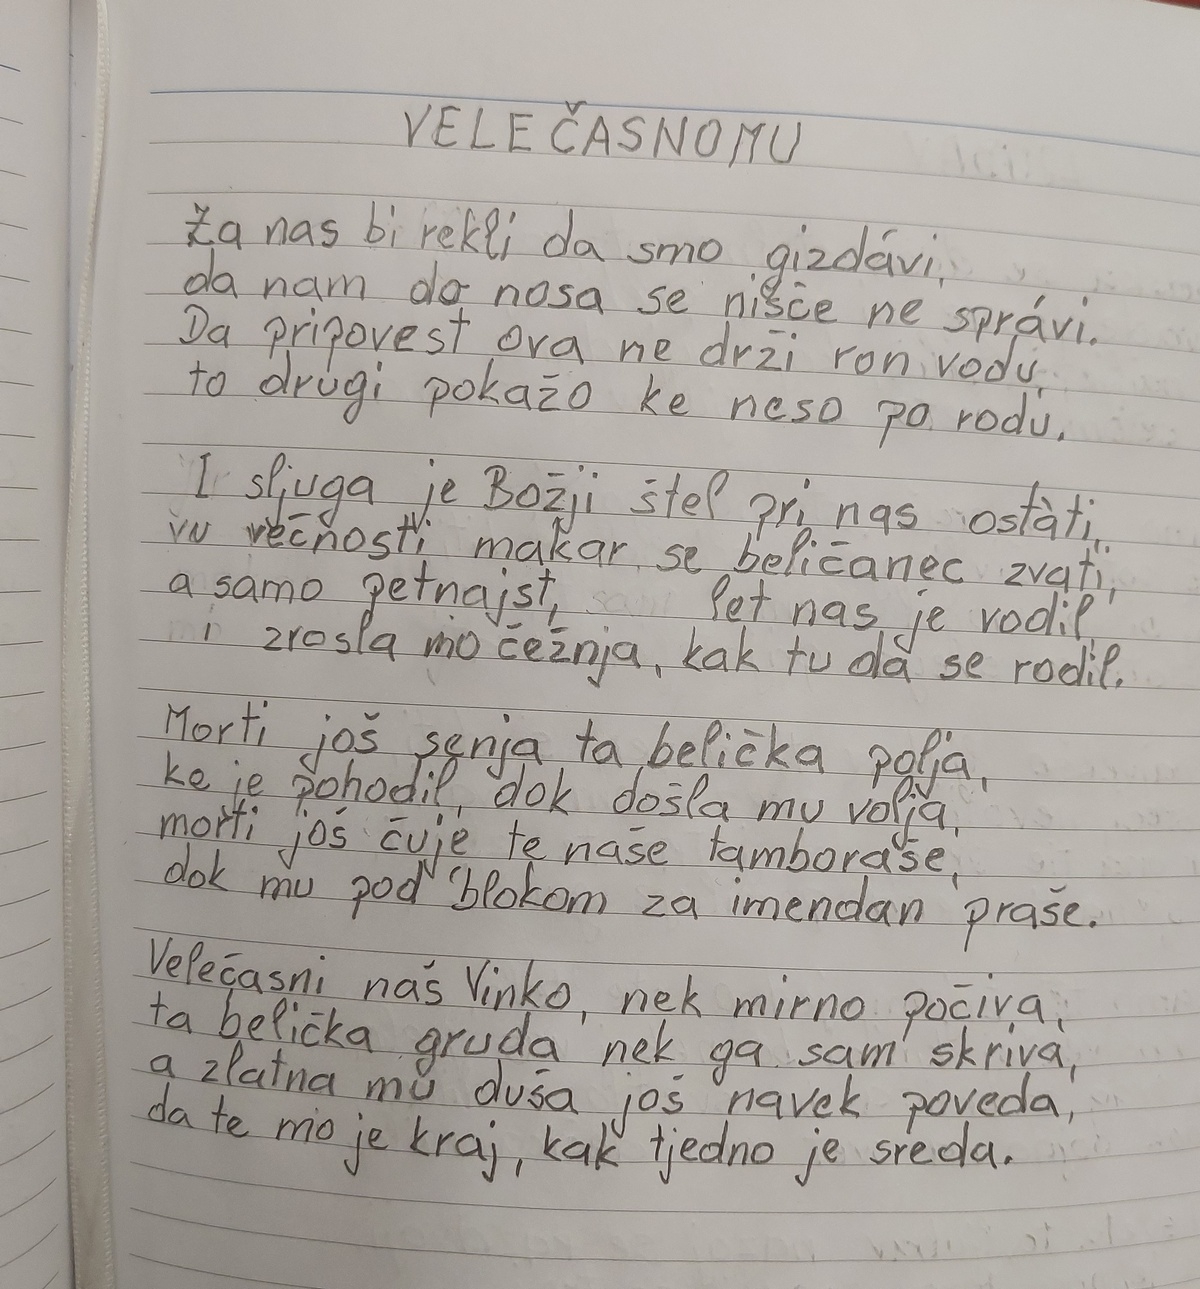 VELEČASNOMU
Za nas bi rekli da smo gizdávi,
da nam do nosa se nišče ne správi.
Da pripovest ova ne drži ron vodu,
to drugi pokažo ke neso po rodu.
I sljuga je Božji štel pri nas ostàti,
vu večnosti makar se beličanec zvati,
a samo petnajst, let nas je vodil,
i zrosla mo čežnja, kak tu da se rodil.
Morti još senja ta belička polja,
ke je pohodil, dok došla mu volja,
morti još čuje te naše tamboraše,
dok mu pod blokom za imendan praše.
Velečasni naš Vinko, nek mirno počiva,
ta belička gruda nek ga sam skriva,
a zlatna mu duša još navek poveda,
da te mo je kraj, kak tjedno je sreda.